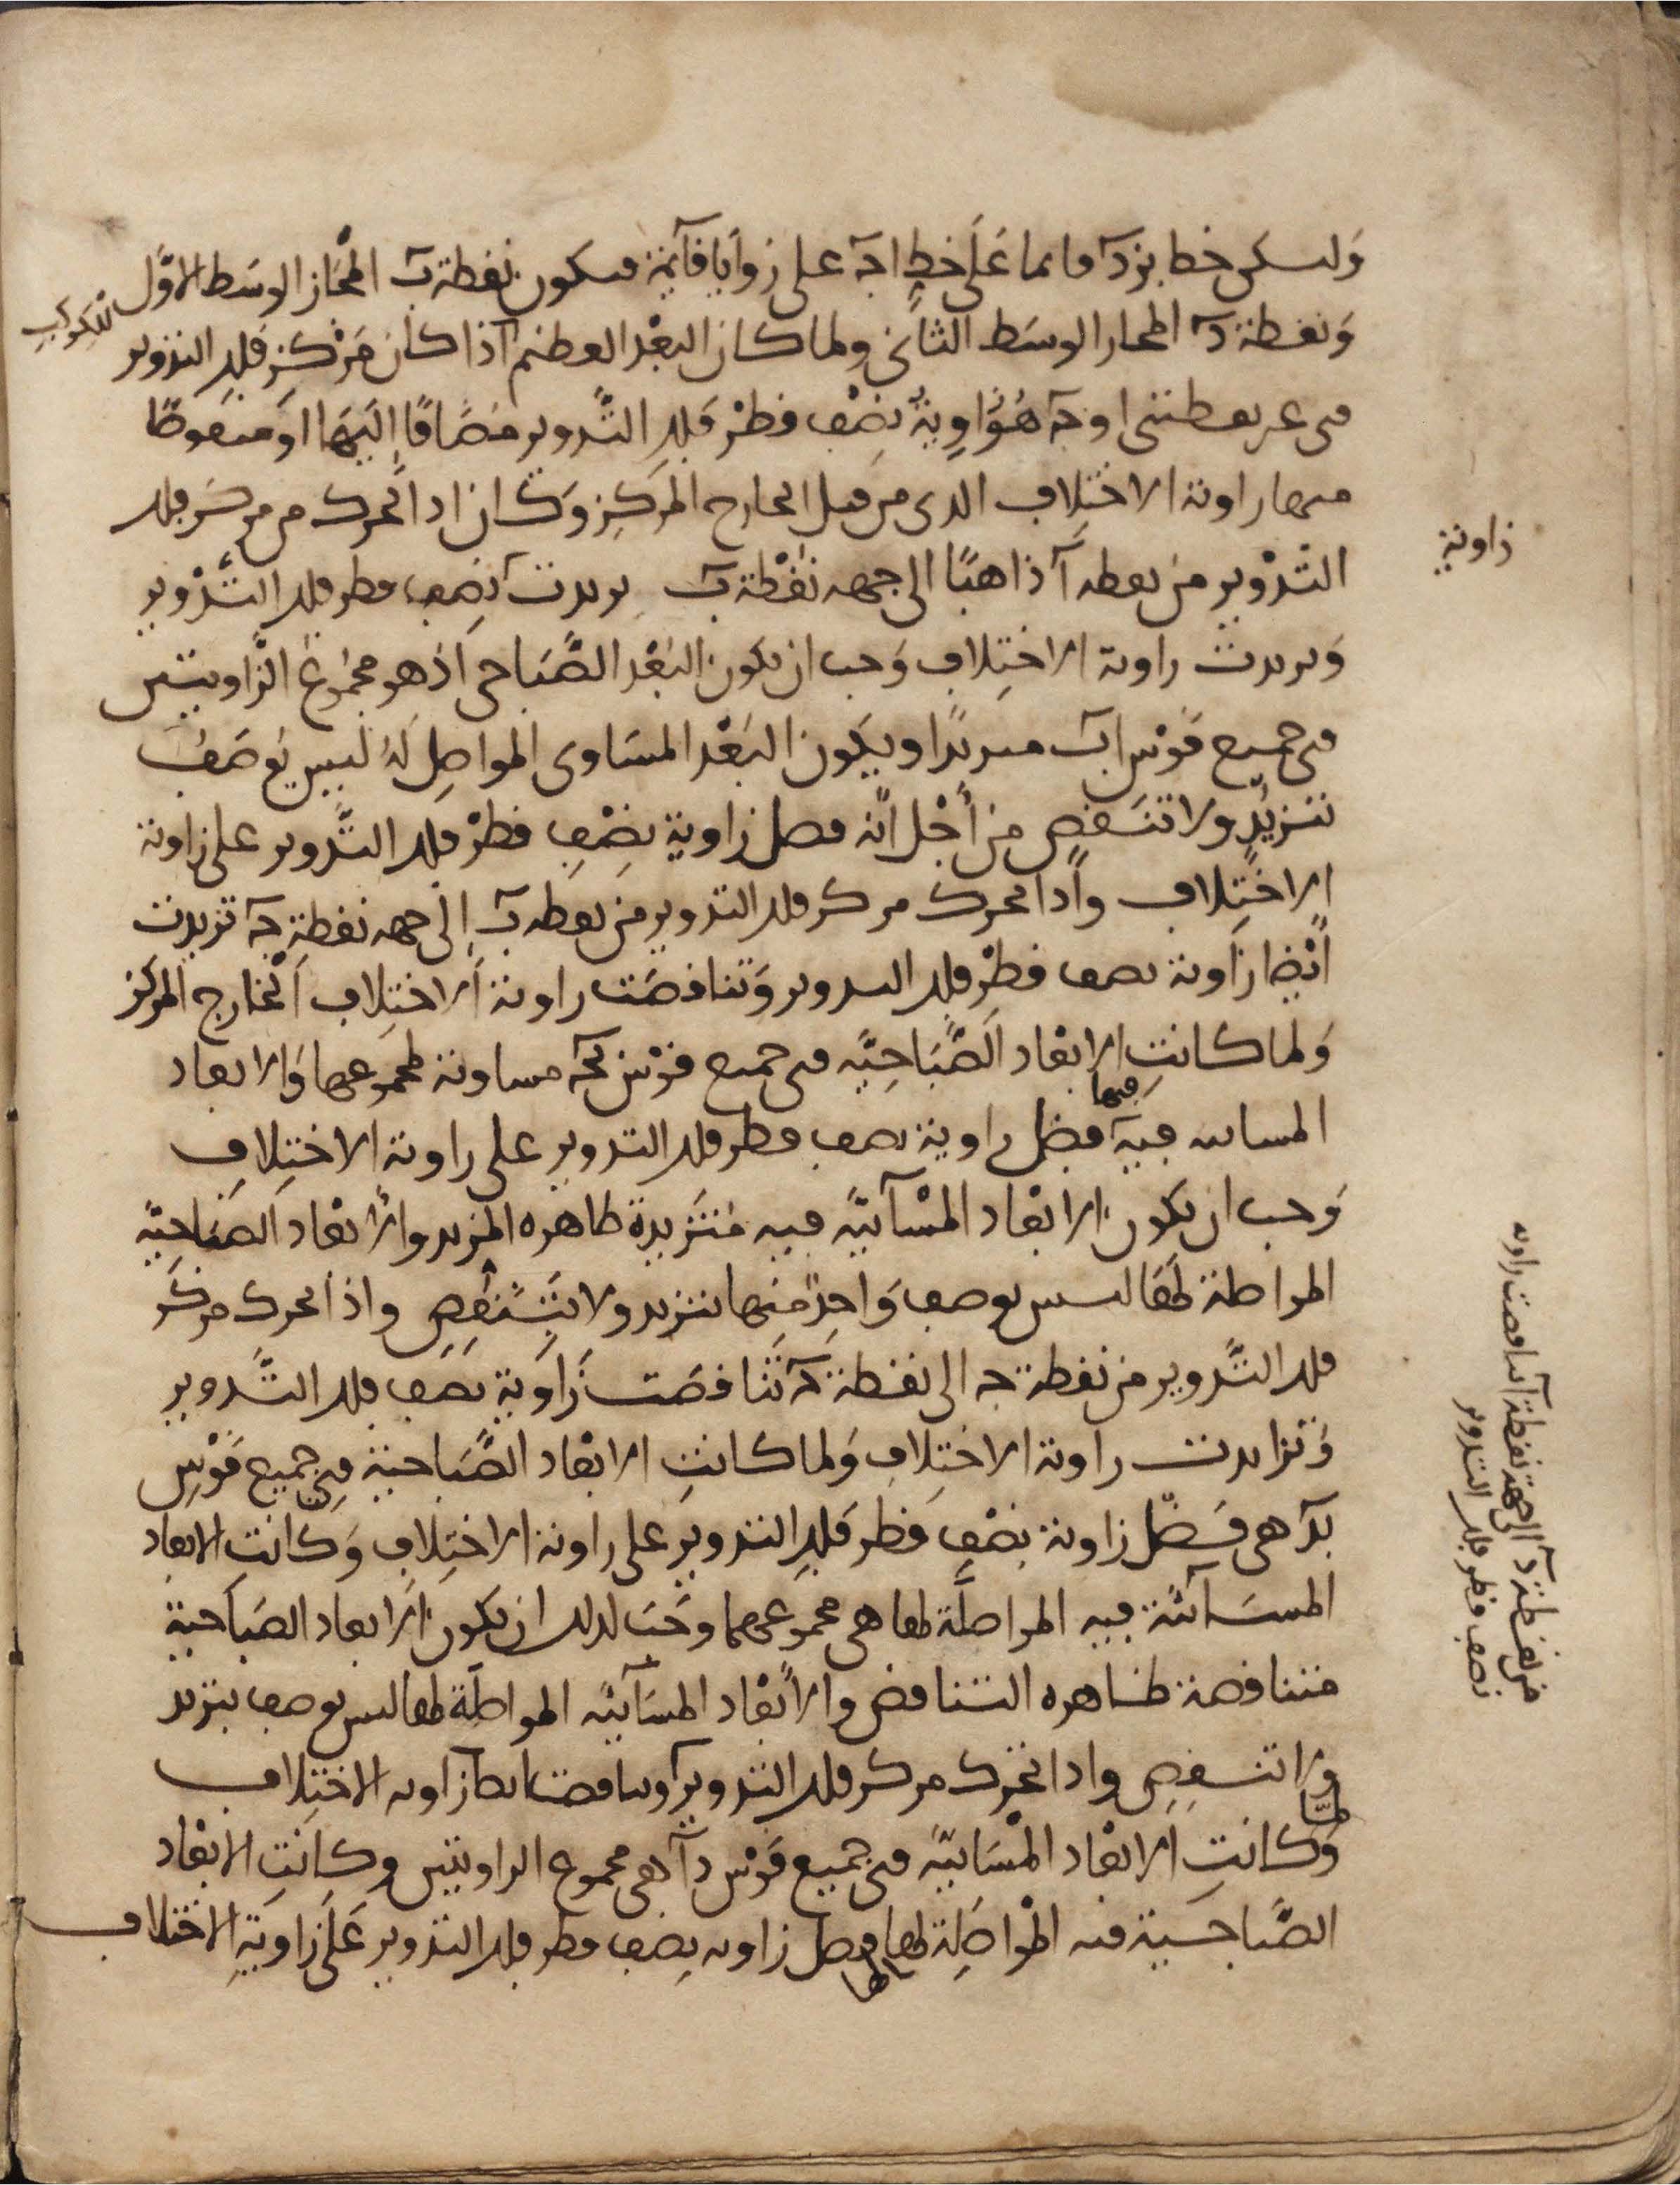 وليكن خط بزد قائما على خط اجـ على زوايا قائمة فتكون نقطة ب المجاز الوسط الاول للكوكب
ونقطة د المجاز الوسط الثاني ولما كان البعد العظيم اذا كان مركز فلك التدوير
في غير نقطتي ا وجـ هو زاوية نصف قطر فلك التدوير مضافا اليها او منقوصا
منها زاوية الاختلاف الذي من قبل الخارج المركز وكان اذا تحرك من مركز فلك
التدوير من نقطة ا ذاهبا الى جهة نقطة ب تزيدت نصف قطر فلك التدوير
زاوية
وتزيدت زاوية الاختلاف وجب ان يكون البعد الصباحي اذ هو مجموع الزاويتين
في جميع قوس اب متزيدا ويكون البعد المساوي المواصل له ليس يوصف
بتزيد ولا تنقص من اجل انه فضل زاوية نصف قطر فلك التدوير على زاوية
الاختلاف واذا تحرك مركز فلك التدوير من نقطة ب الى جهة نقطة جـ تزيدت
ايضا زاوية نصف قطر فلك التدوير وتناقصت زاوية الاختلاف الخارج المركز
ولما كانت الابعاد الصباحية في جميع قوس بجـ مساوية لمجموعهما والابعاد
المسائية فيه فيها فضل زاوية نصف قطر فلك التدوير على زاوية الاختلاف
وجب ان يكون الابعاد المسآئية فيه متزيدة ظاهره التزيد والابعاد الصباحية
المواصلة لها ليس يوصف واحد منها بتزيد ولا بتنقص واذا تحرك مركز
فلك التدوير من نقطة جـ الى نقطة د تناقصت زاوية نصف فلك التدوير
وتزايدت زاوية الاختلاف ولما كانت الابعاد الصباحية في جميع قوس
جد هي فضل زاوية نصف قطر فلك التدوير على زاوية الاختلاف وكانت الابعاد
المسآئية فيه المواصلة لها هي مجموعهما وجب لذلك ان يكون الابعاد الصباحية
متناقصة ظاهره التناقض والابعاد المسآئية المواصلة لها ليس يوصف بتزيد
ولا تنقص واذا تحرك مركز فلك التدوير وتناقصت ايضا زاوية الاختلاف
من نقطة د الى جهة نقطة ا تناقصت زاوية
نصف قطر فلك التدوير
ولما كانت الابعاد المسائية في جميع قوس دا هي مجموع الزاويتين وكانت الابعاد
الصباحية فيه المواصلة لها فضل زاوية نصف قطر فلك التدوير على زاوية الاختلاف